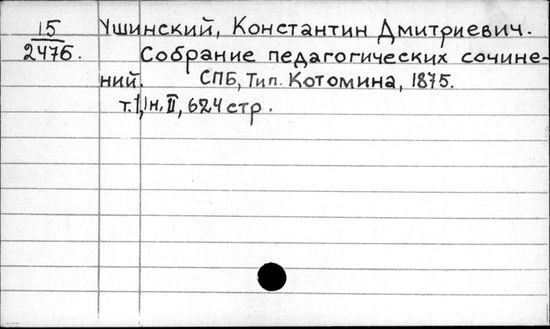 15
2476.
Ушинский, Константин Дмитриевич.
Собрание педагогических сочине-
ний. СПБ, Тип. Котомина, 1875.
т.1, Iн, II, 624 стр.